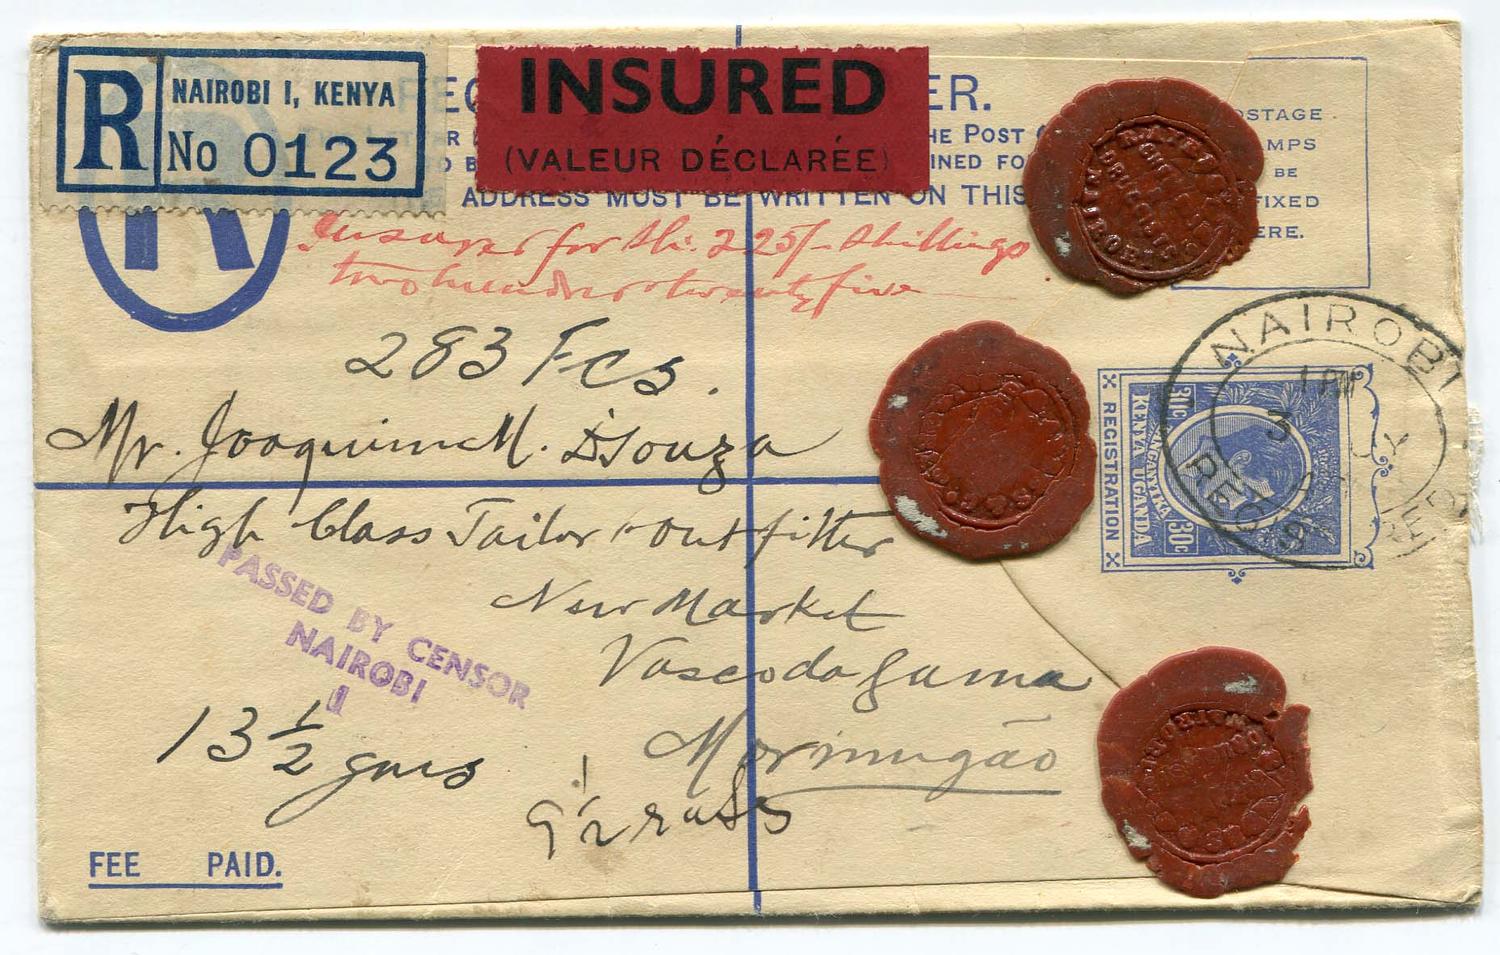 R
NAIROBI I, KENYA
No 0123
INSURED
(VALEUR DÉCLARÉE)
ER.
HE POST
INED FO
ADDRESS MUST BE WRITTEN ON THIS
OSTAGE
AMPS
BE
FIXED
ERE.
R
Insured for Sh. 225/- Shillings
two hundred twenty five
283 Fcs.
Mr. Joaquim M. D'Souza
High Class Tailor & outfitter
New Market
Vasco da Gama
Mormugão
PASSED BY CENSOR
NAIROBI
1
13 1/2 gms
9 1/2
NAIROBI
1 PM
3
REG
REGISTRATION
30c
KENYA UGANDA
TANGANYIKA
30c
FEE PAID.